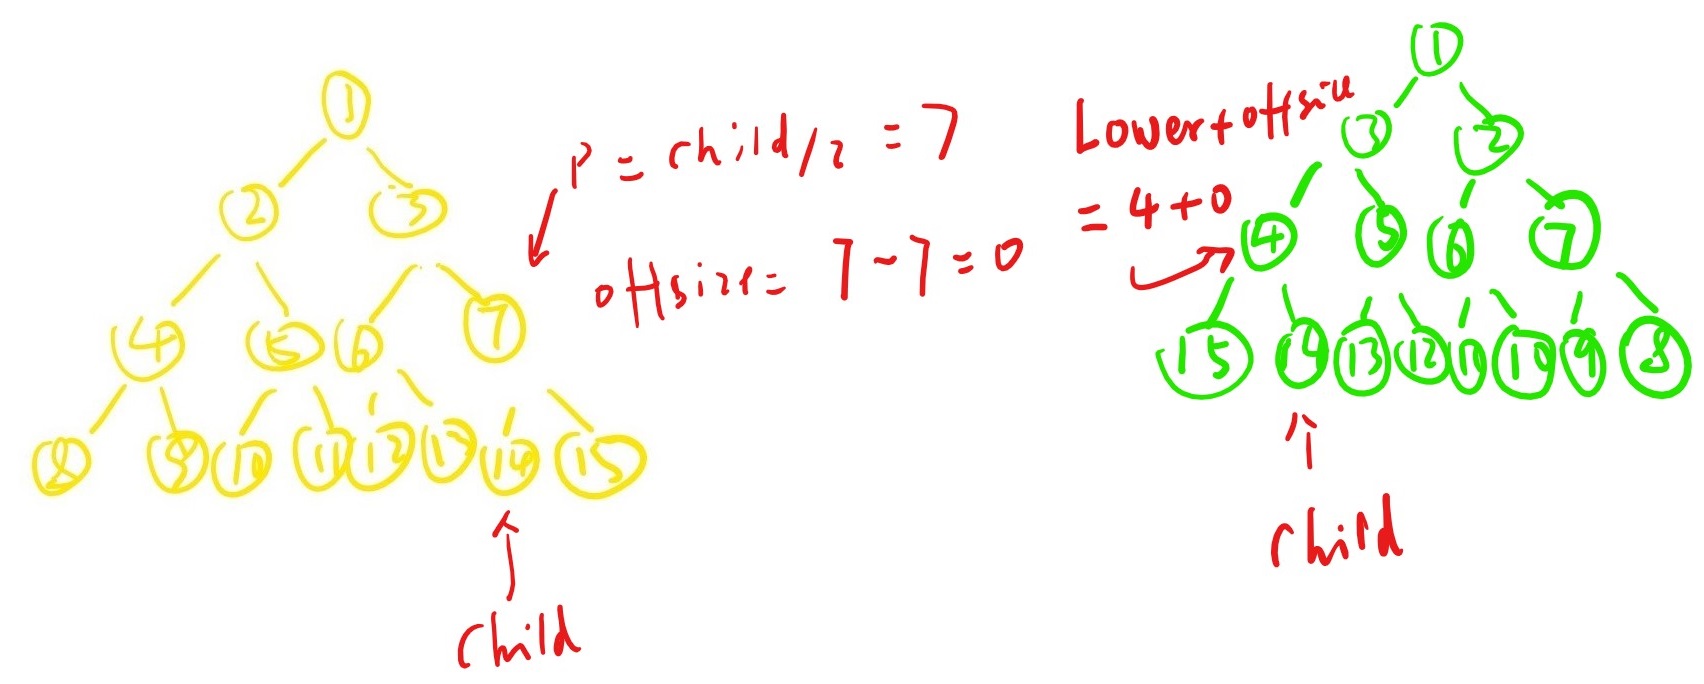 1
2 3
4 5 6 7
8 9 10 11 12 13 14 15
child
P = child/2 = 7
offsize = 7-7=0
Lower+offsize
= 4+0
1
3 2
4 5 6 7
15 14 13 12 10 10 9 8
child